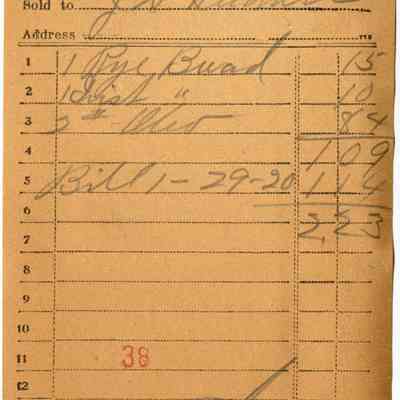 Sold to
Address
1 1 Rye Bread 15
2 1 Twist " 10
3 2# Oleo 84
4 1 09
5 Bill 1-29-20 1 14
6 2,23
7
8
9
10
11 38
12